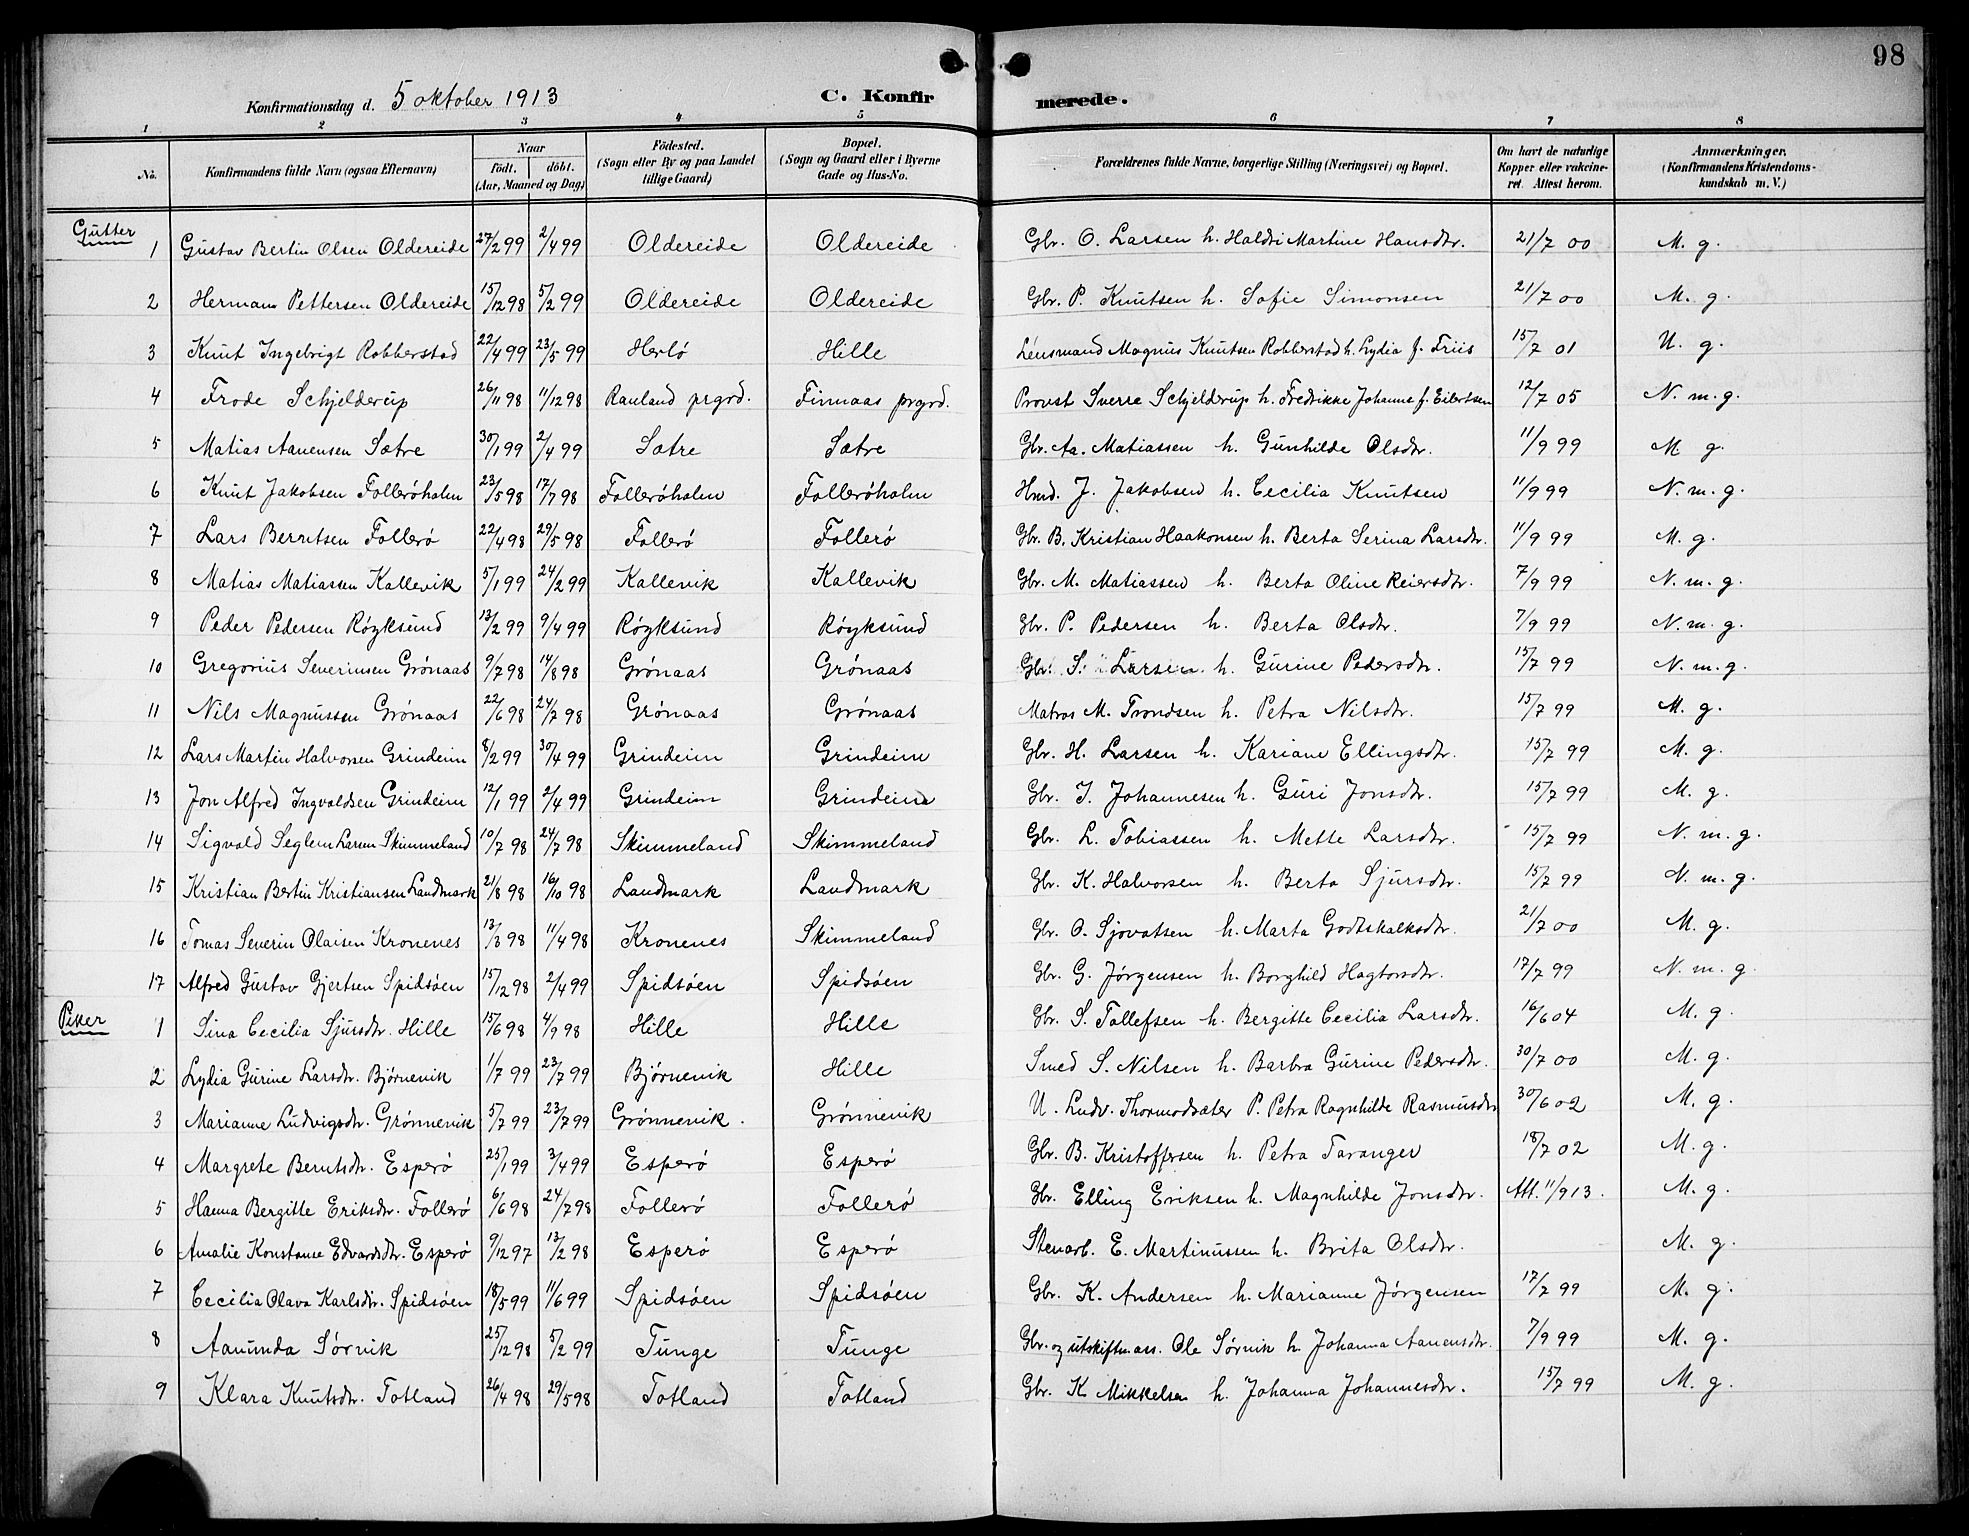 98
Konfirmationsdag d. 5 oktober 1913 C. Konfirmerede.
1 2 3 4 5 6 7 8
No. Konfirmandens fulde Navn (ogsaa Efternavn) Naar født. døbt. (Aar, Maaned og Dag) Fødested. (Sogn eller By og paa Landet tillige Gaard) Bopæl. (Sogn og Gaard eller i Byerne Gade og Hus-No. Forældrenes fulde Navne, borgerlige Stilling (Næringsvei) og Bopæl. Om havt de naturlige Kopper eller vakcineret. Attest herom. Anmærkninger, (Konfirmandens Kristendomskundskab m. V.)
Gutter
1 Gustav Bertin Olsen Oldereide 27/2 99 2/4 99 Oldereide Oldereide Gbr. O. Larsen h. Haldis Martine Hansdtr. 21/7 00 M. g.
2 Herman Pettersen Oldereide 15/12 98 5/2 99 Oldereide Oldereide Gbr. P. Knutsen h. Sofie Simonsen 21/7 00 M. g.
3 Knut Ingebrigt Robberstad 22/4 99 23/5 99 Herlø Hille Lensmand Magnus Knutsen Robberstad h. Lydia f. Friis 15/7 01 U. g.
4 Frode Schjelderup 26/11 98 11/12 98 Rauland prgrd. Finnaas prgrd. Provst Sverre Schjelderup h. Fredrikke Johanne f. Eilertsen 12/7 05 N. m. g.
5 Matias Aanensen Sætre 30/1 99 2/4 99 Sætre Sætre Gbr. Aa. Matiassen h. Gunhilde Olsdtr. 11/9 99 M g.
6 Knut Jakobsen Follerøholm 23/5 98 17/7 98 Follerøholm Follerøholm Hmd. J. Jakobsen h. Cecilia Knutsen 11/9 99 N. m. g.
7 Lars Berntsen Follerø 22/4 98 29/5 98 Follerø Follerø Gbr. B. Kristian Haakonsen h. Berta Serina Larsdtr. 11/9 99 M. g.
8 Matias Matiassen Kallevik 5/1 99 24/2 99 Kallevik Kallevik Gbr. M. Matiassen h. Berta Oline Reiersdtr. 7/9 99 N. m. g.
9 Peder Pedersen Røyksund 13/2 99 9/4 99 Røyksund Røyksund Gbr. P. Pedersen h. Berta Olsdtr. 7/9 99 N. m. g.
10 Gregorius Severinsen Grønaas 9/7 98 14/8 98 Grønaas Grønaas Gbr. S. Larsen h. Gurine Pedersdtr. 15/7 99 N. m. g.
11 Nils Magnussen Grønaas 22/6 98 24/7 98 Grønaas Grønaas Matros M. Trondsen h. Petra Nilsdtr. 15/7 99 M. g.
12 Lars Martin Halvorsen Grindeim 8/2 99 30/4 99 Grindeim Grindeim Gbr. H. Larsen h. Kariane Ellingsdtr. 15/7 99 M. g.
13 Jon Alfred Ingvaldsen Grindeim 12/1 99 2/4 99 Grindeim Grindeim Gbr. I. Johannesen h. Guri Jonsdtr. 15/7 99 M. g.
14 Sigvald Seglem Larsen Skimmeland 10/7 98 24/7 98 Skimmeland Skimmeland Gbr. L. Tobiassen h. Mette Larsdtr. 15/7 99 N. m. g.
15 Kristian Bertin Kristiansen Landmark 21/8 98 16/10 98 Landmark Landmark Gbr. K. Halvorsen h. Berta Sjursdtr. 15/7 99 N. m. g.
16 Tomas Severin Olaisen Kronenes 13/3 98 11/4 98 Kronenes Skimmeland Gbr. O. Sjovatsen h. Marta Godtskalksdtr. 21/7 00 M. g.
17 Alfred Gustav Gjertsen Spidsøen 15/12 98 2/4 99 Spidsøen Spidsøen Gbr. G. Jørgensen h. Borghild Hagtorsdtr. 17/7 99 N. m. g.
Piker
1 Sina Cecilia Sjursdtr. Hille 15/6 98 4/9 98 Hille Hille Gbr. S. Tollefsen h. Bergitte Cecilia Larsdtr. 16/6 04 M. g.
2 Lydia Gurine Larsdtr. Bjørnevik 1/7 99 23/7 99 Bjørnevik Hille Smed S. Nilsen h. Barbra Gurine Pedersdtr. 30/7 00 M. g.
3 Marianne Ludvigsdtr. Grønnevik 5/7 99 23/7 99 Grønnevik. Grønnevik U. Ludv. Thormodsæter P. Petra Ragnhilde Rasmusdtr 30/6 02 M. g.
4 Margrete Berntsdtr. Esperø 25/1 99 3/4 99 Esperø Esperø Gbr. B. Kristoffersen h. Petra Taranger 18/7 02 M. g.
5 Hanna Bergitte Eriksdtr. Follerø 6/6 98 24/7 98 Follerø Follerø Gbr. Elling Eriksen h. Magnhilde Jonsdtr. Att. 11/9 13. M. g.
6 Amalie Konstanse Edvardsdtr. Esperø 9/12 97 13/2 98 Esperø Esperø Stenarb. E. Martinussen h. Brita Olsdtr. M. g.
7 Cecilia Olava Karlsdtr. Spidsøen 18/5 99 11/6 99 Spidsøen Spidsøen Gbr. K. Andersen h. Marianne Jørgensen 17/7 99 M. g.
8 Aanunda Sørvik 25/12 98 5/2 99 Tunge Tunge Gbr. og utskiftn.ass. Ole Sørvik h. Johanna Aanensdtr. 7/9 99 M. g.
9 Klara Knutsdtr. Totland 26/4 98 29/5 98 Totland Totland Gbr. K Mikkelsen h. Johanna Johannesdtr. 15/7 99 M. g.